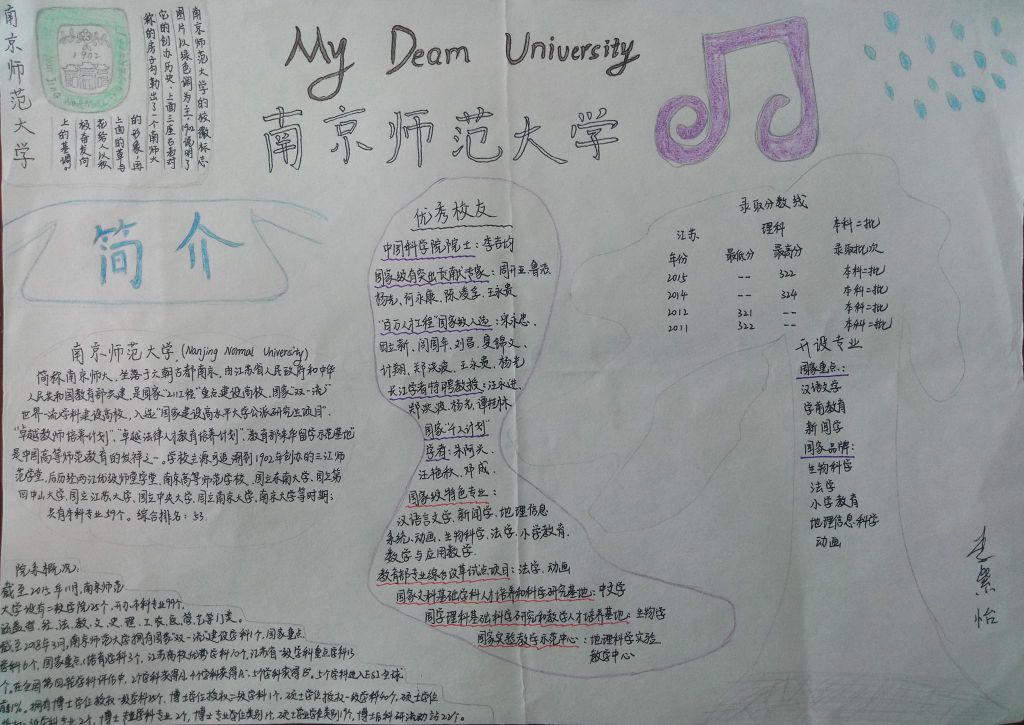 南京师范大学
1902
南京师范大学的校徽标志
图片以绿色调为主,1902说明了
它的创办历史,上面三座古老对
称的房子勾勒出了一个南师大
的形象,再
上面的草与
花给人以积
极奋发向
上的基调。
My Deam University
南京师范大学
简介
南京师范大学.(Nanjing Normal University)
简称南京师大,坐落于六朝古都南京,由江苏省人民政府和中华
人民共和国教育部共建,是国家"211工程"重点建设高校,国家"双一流"
世界一流学科建设高校,入选"国家建设高水平大学公派研究生项目",
"卓越教师培养计划""卓越法律人才教育培养计划".教育部来华留学示范基地"
是中国高等师范教育的发祥之一。学校主源可追溯到1902年创办的三江师
范学堂,后历经两江优级师范学堂,南京高等师范学校、国立东南大学、国立第
四中山大学、国立江苏大学、国立中央大学、国立南京大学、南京大学等时期;
共有本科专业59个。综合排名:53.
院系概况:
截至2015年11月,南京师范
大学设有二级学院25个,开办本科专业99个,
涵盖哲、经、法、教、文、史、理、工、农、医、管、艺等12类。
截至2018年3月,南京师范大学拥有国家双一流建设学科1个,国家重点
学科6个,国家重点(培育)学科3个,江苏高校优势学科10个,江苏省一级学科重点学科13
个。在全国第四轮学科评估中,2个学科获得A,4个学科获得A-,5个学科获得B+。5个学科进入ESI全球
前1%。拥有博士学位授权一级学科25个,博士学位授权二级学科1个,硕士学位授权一级学科40个,硕士学位
优秀校友
中国科学院院士:李吉均
国家级有突出贡献专家:周开亚、鲁洁、
杨光、何永康、陈凌孚、王永贵
"百万人才工程"国家级人选:宋永忠、
田立新、闵国年、刘昌、夏锦文、
计翔、郑洪波、王永贵、杨光
长江学者特聘教授:汪永进、
郑洪波、杨光、谭桂林
国家"千人计划"
学者:朱阿兴、
汪艳秋、邓成
国家级特色专业:
汉语言文学、新闻学、地理信息
系统、动画、生物科学、法学、小学教育、
数学与应用数学.
教育部专业综合改革试点项目:法学、动画
国家文科基础学科人才培养和科学研究基地:中文学
国学理科基础科学研究和教学人才培养基地:生物学
国家实验教学示范中心:地理科学实验
教学中心
录取分数线
江苏 理科 本科二批
年份 最低分 最高分 录取批次
2015 -- 322 本科二批
2014 -- 324 本科二批
2012 321 -- 本科二批
2011 322 -- 本科二批
开设专业
国家重点:
汉语文学
学前教育
新闻学
国家品牌:
生物科学
法学
小学教育
地理信息科学
动画
紫怡